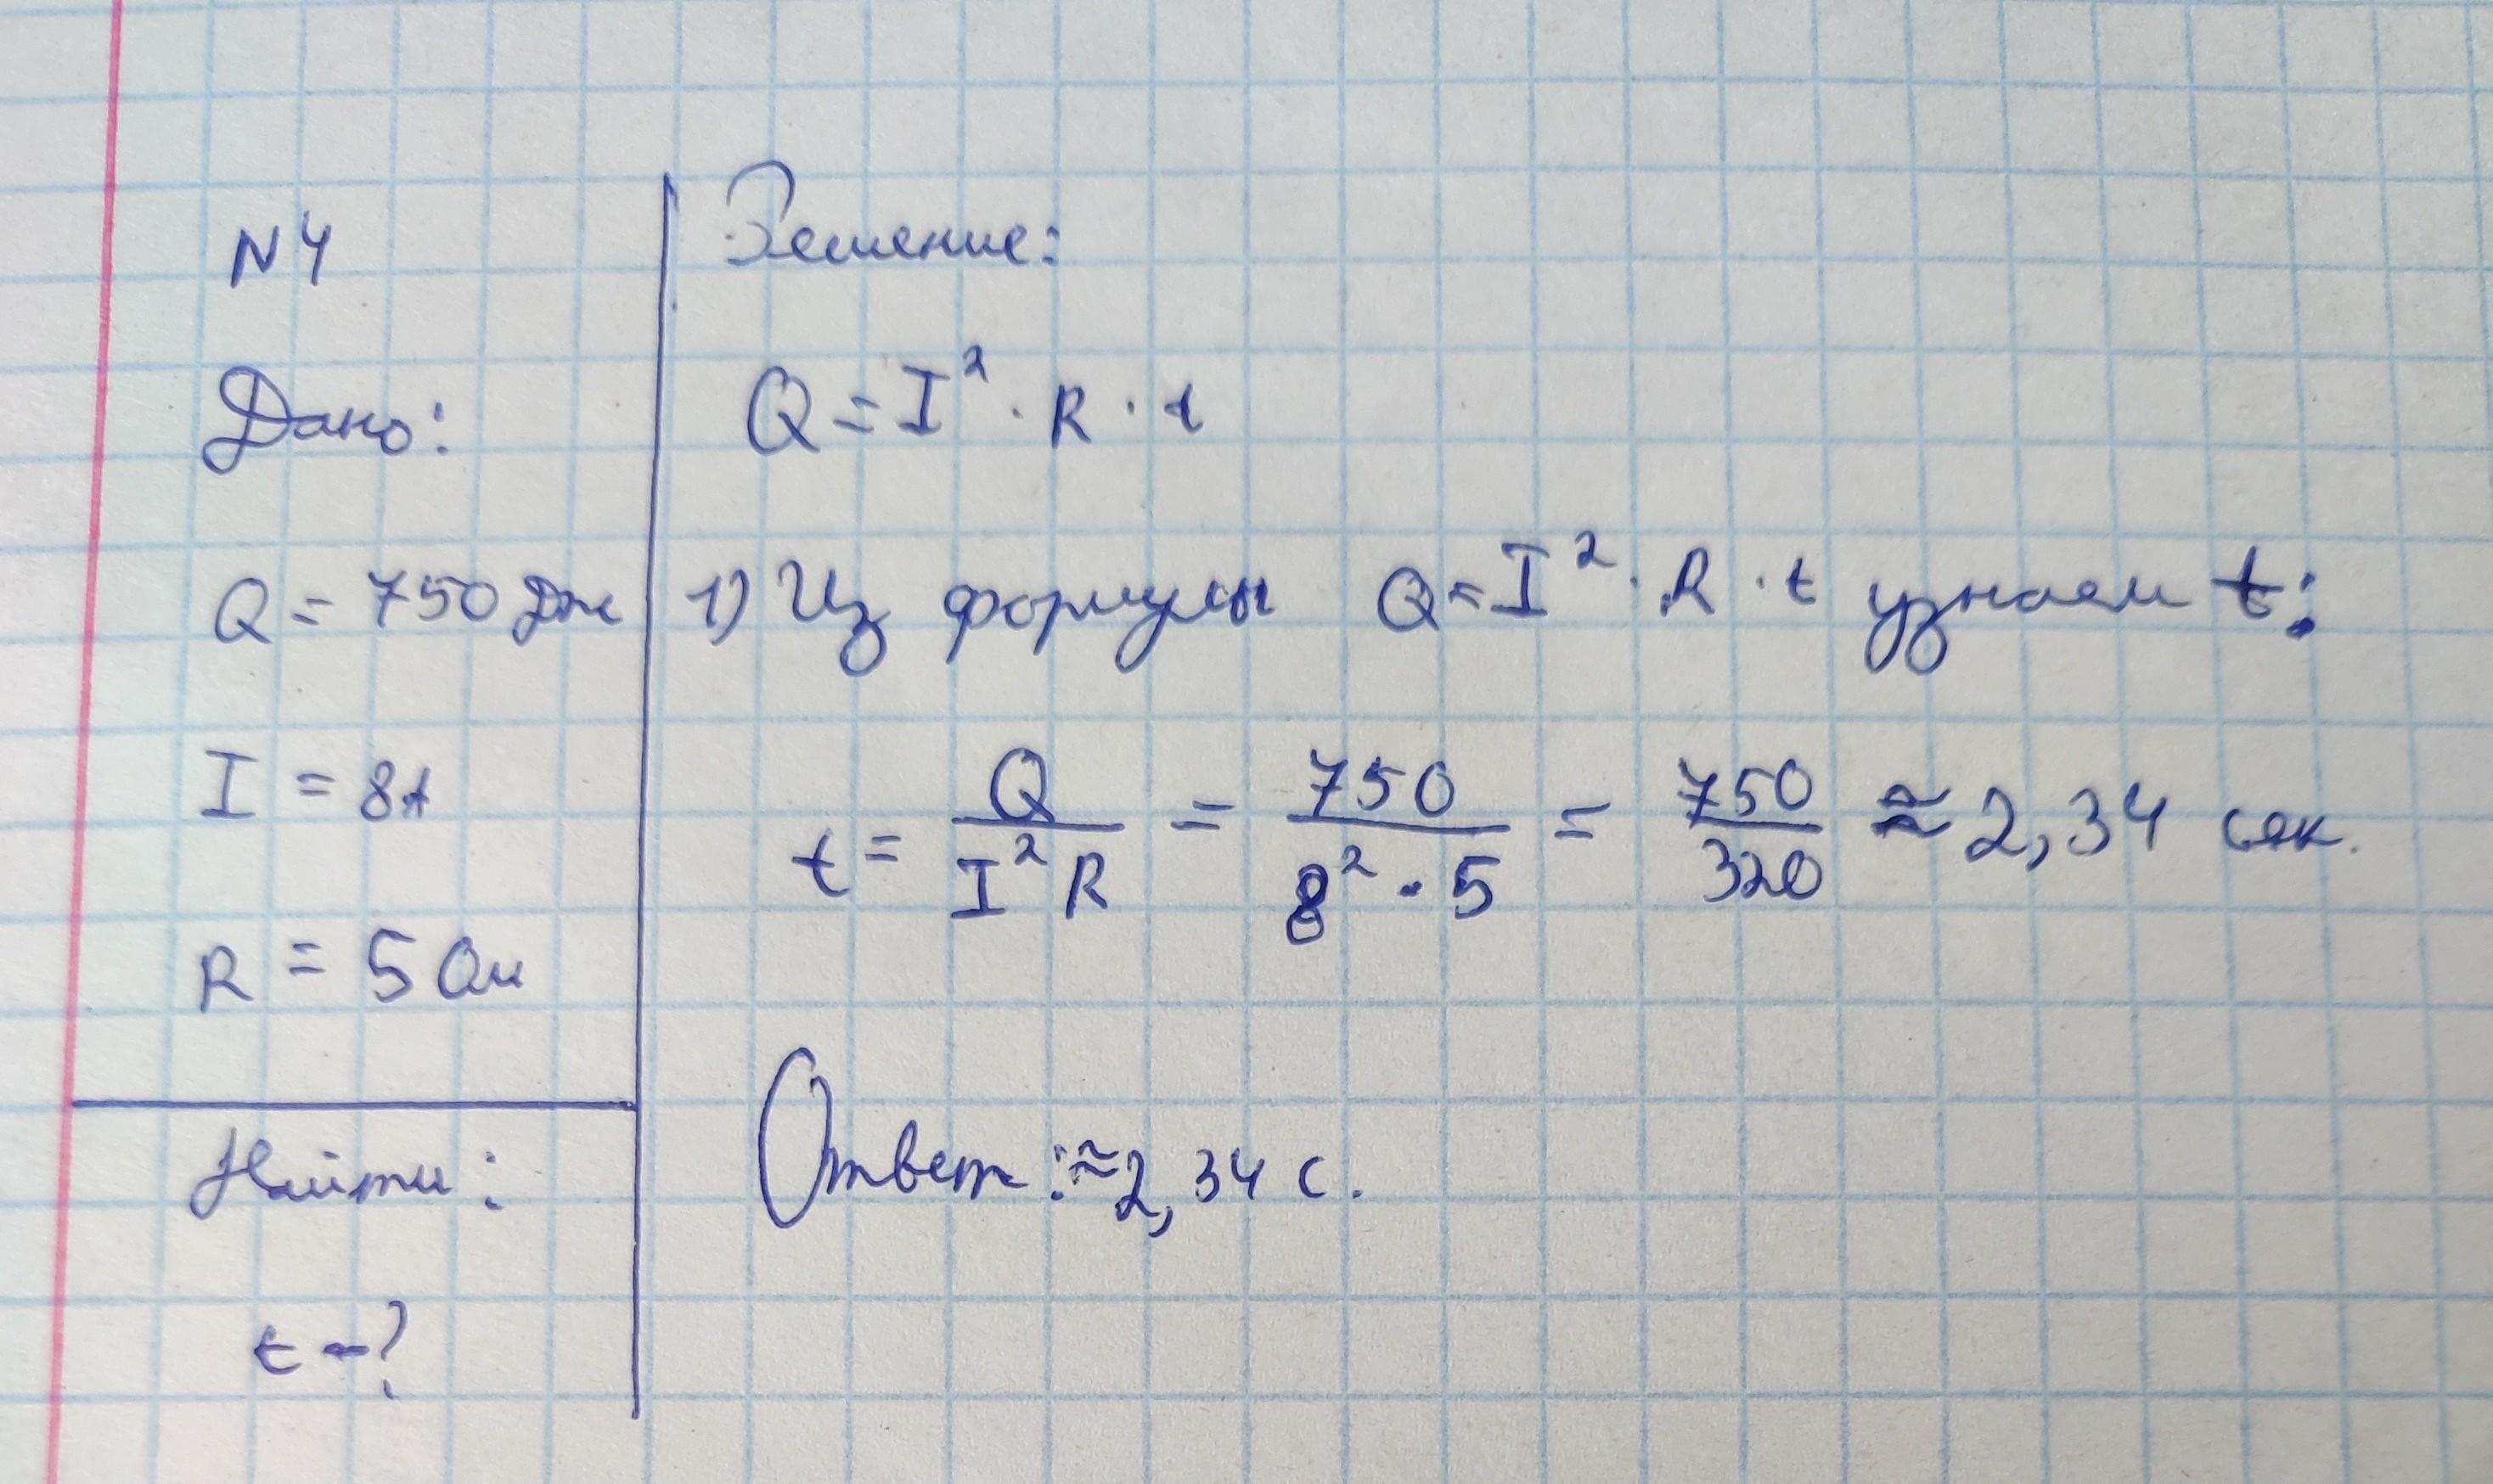 N4
Дано:
Q = 750 Дж
I = 8А
R = 5 Ом
Найти:
t - ?
Решение:
Q = I² · R · t
1) Из формулы Q = I² · R · t узнаем t:
t = Q / I² R = 750 / 8² · 5 = 750 / 320 ≈ 2,34 сек.
Ответ: ≈ 2,34 с.